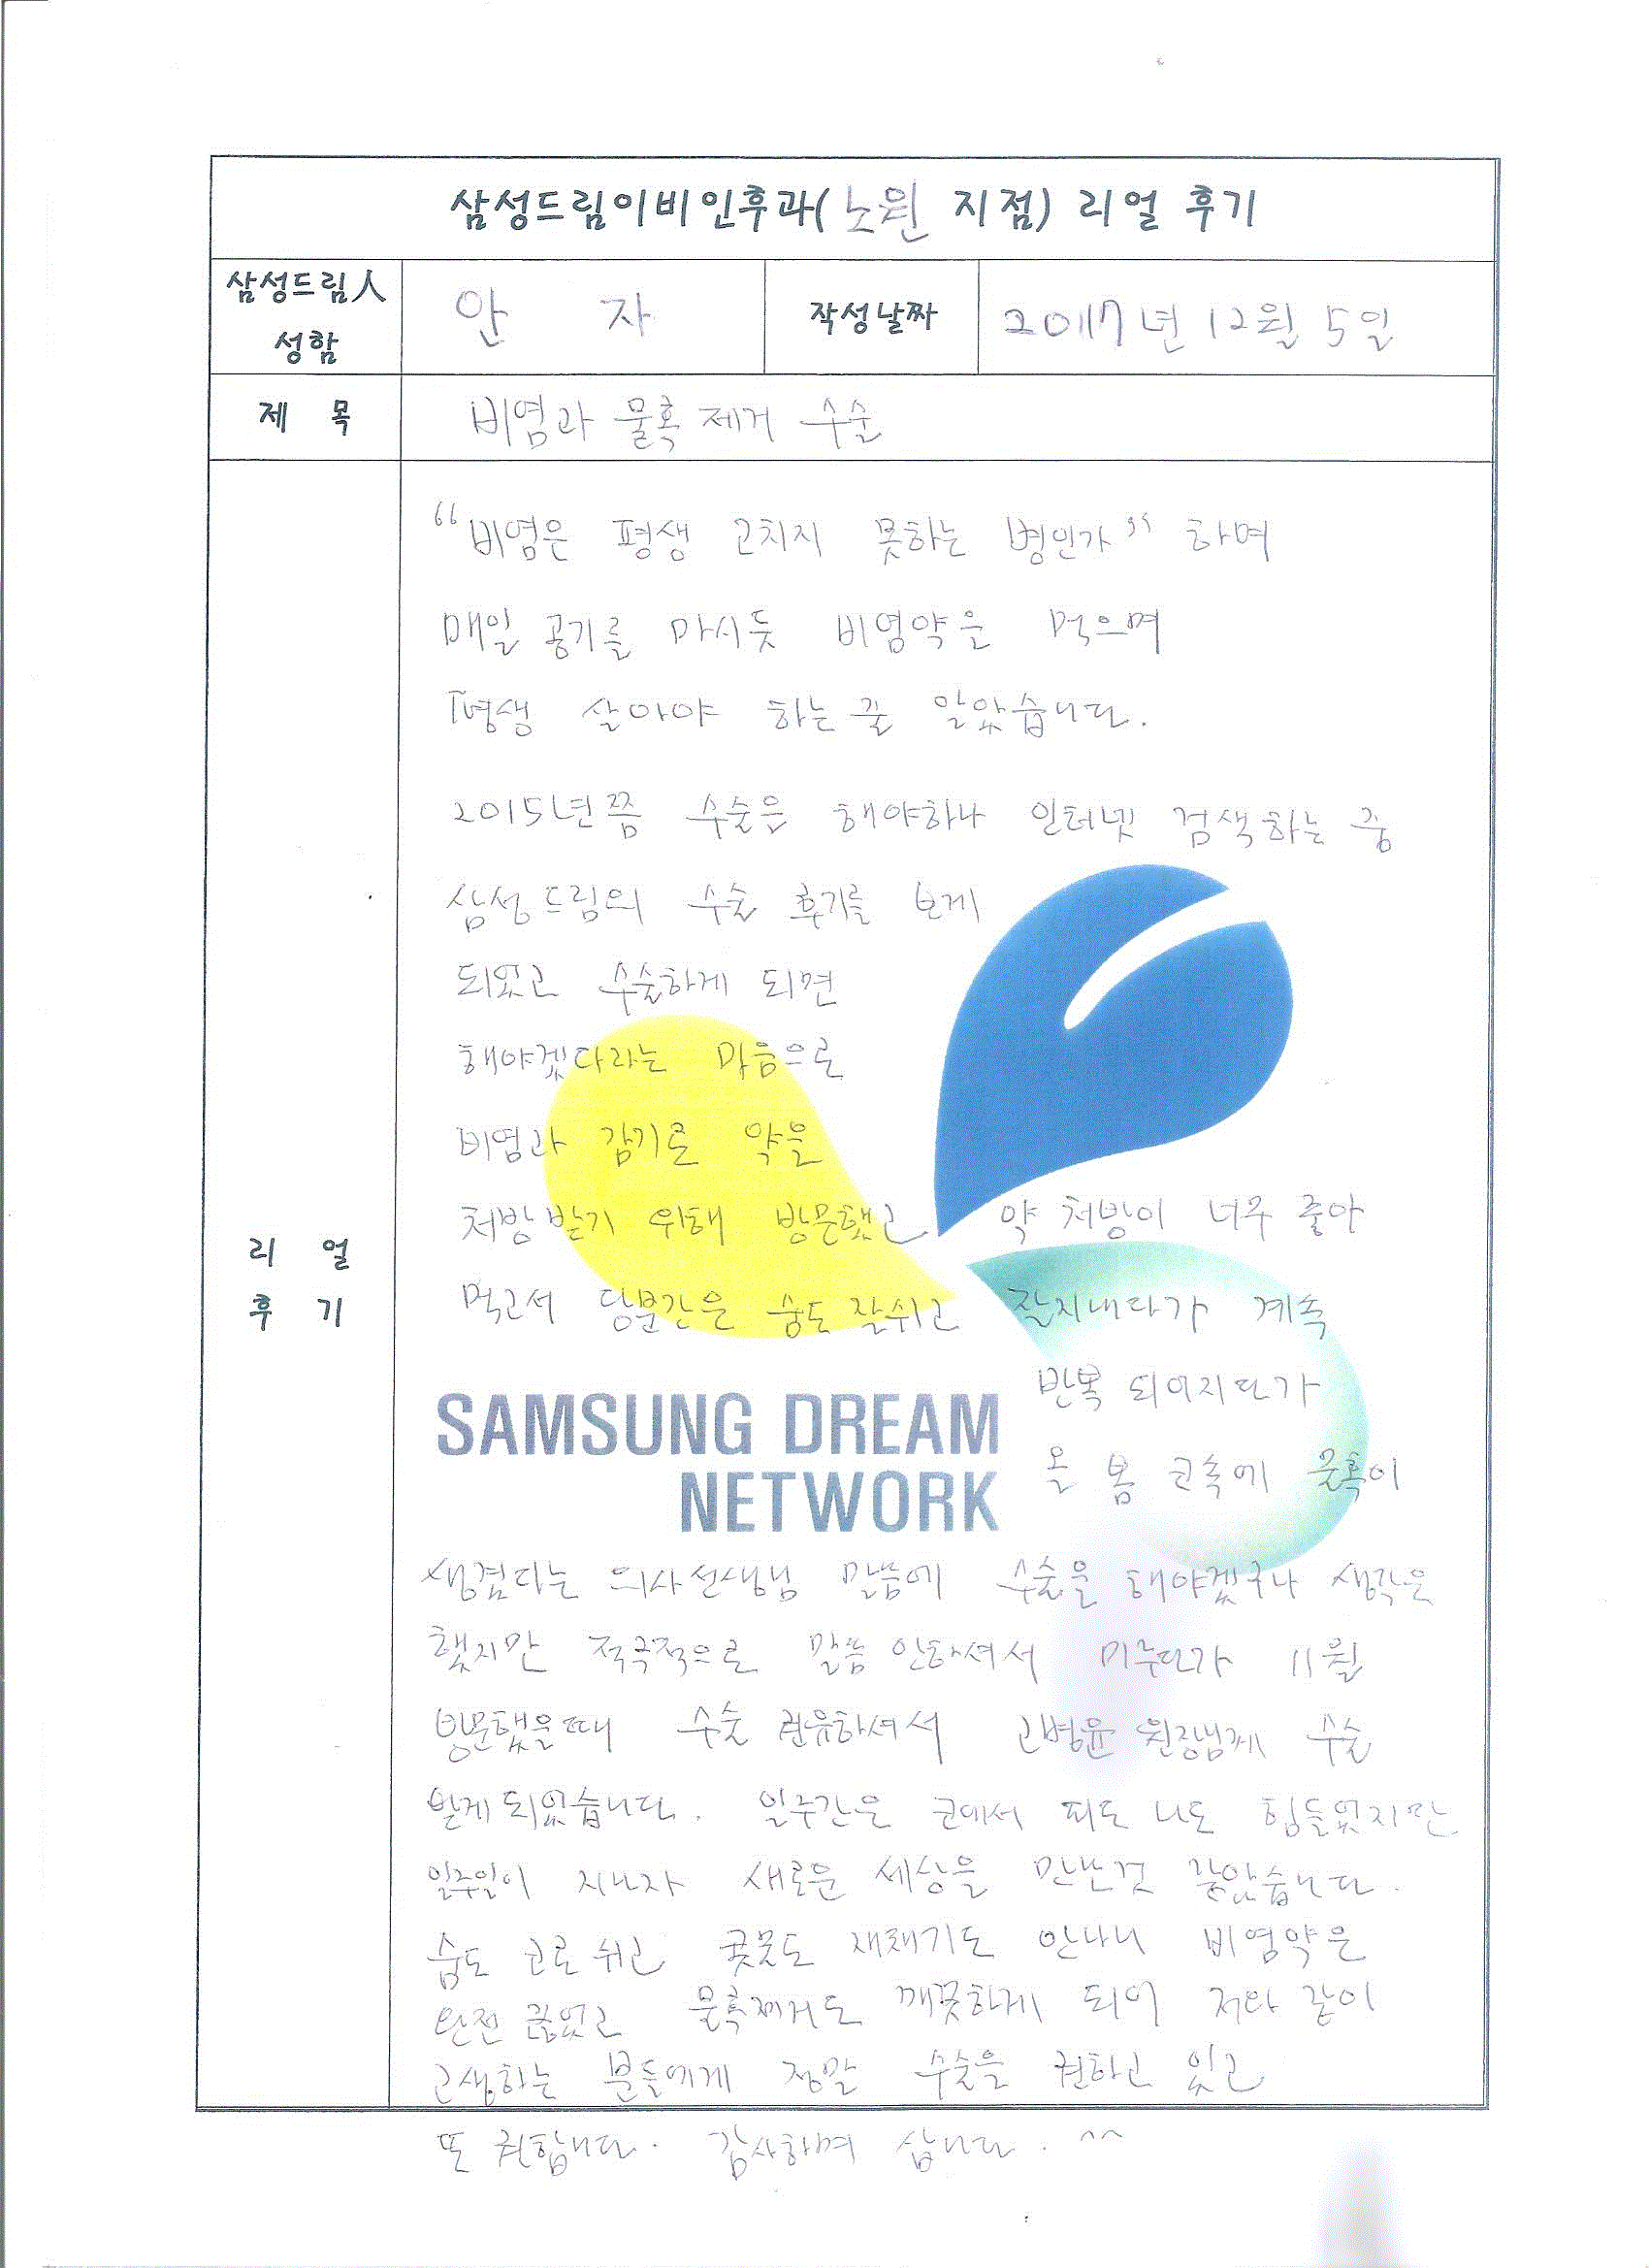 삼성드림이비인후과(노원 지점) 리얼 후기
삼성드림人
성함
안 자
작성날짜
2017년 12월 5일
제 목
비염과 물혹 제거 수술
리 얼
후 기
“비염은 평생 고치지 못하는 병인가” 하며
매일 공기를 마시듯 비염약을 먹으며
평생 살아야 하는줄 알았습니다.
2015년쯤 수술은 해야하나 인터넷 검색하는 중
삼성드림의 수술 후기를 보게
되었고 수술하게 되면
해야겠다라는 마음으로
비염과 감기로 약을
처방받기 위해 방문했고 약 처방이 너무 좋아
먹고서 당분간은 숨도 잘쉬고 잘지내다가 계속
반복 되어지다가
SAMSUNG DREAM
NETWORK
올 봄 코속에 물혹이
생겼다는 의사선생님 말씀에 수술을 해야겠구나 생각은
했지만 적극적으로 말씀 안하셔서 미루다가 11월
방문했을때 수술 권유하셔서 고병윤 원장님께 수술
받게 되었습니다. 일주간은 코에서 피도 나도 힘들었지만
일주일이 지나자 새로운 세상을 만난것 같았습니다.
숨도 고로 쉬고 콧물도 재채기도 안나니 비염약은
완전 끊었고 물혹제거도 깨끗하게 되어 저와 같이
고생하는 분들에게 정말 수술을 권하고 있고
또 권합니다. 감사하며 삽니다. ^^